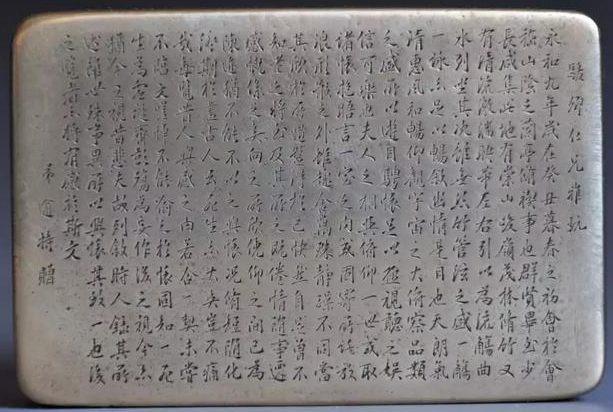 仁兄雅玩
永和九年歲在癸丑暮春之初會於會
稽山陰之蘭亭脩禊事也群賢畢至少
長咸集此地有崇山峻嶺茂林脩竹又
有清流激湍映帶左右引以為流觴曲
水列坐其次雖無絲竹管弦之盛一觴
一詠亦足以暢敘幽情是日也天朗氣
清惠風和暢仰觀宇宙之大俯察品類
之盛所以遊目騁懷足以極視聽之娛
信可樂也夫人之相與俯仰一世或取
諸懷抱晤言一室之內或因寄所託放
浪形骸之外雖趣舍萬殊靜躁不同當
其欣於所遇暫得於己快然自足曾不
知老之將至及其所之既倦情隨事遷
感慨係之矣向之所欣俛仰之間已為
陳迹猶不能不以之興懷況脩短隨化
終期於盡古人云死生亦大矣豈不痛
哉每覽昔人興感之由若合一契未嘗
不臨文嗟悼不能喻之於懷固知一死
生為虛誕齊彭殤為妄作後之視今亦
猶今之視昔悲夫故列敘時人錄其所
述雖世殊事異所以興懷其致一也後
之覽者亦將有感於斯文
弟持贈